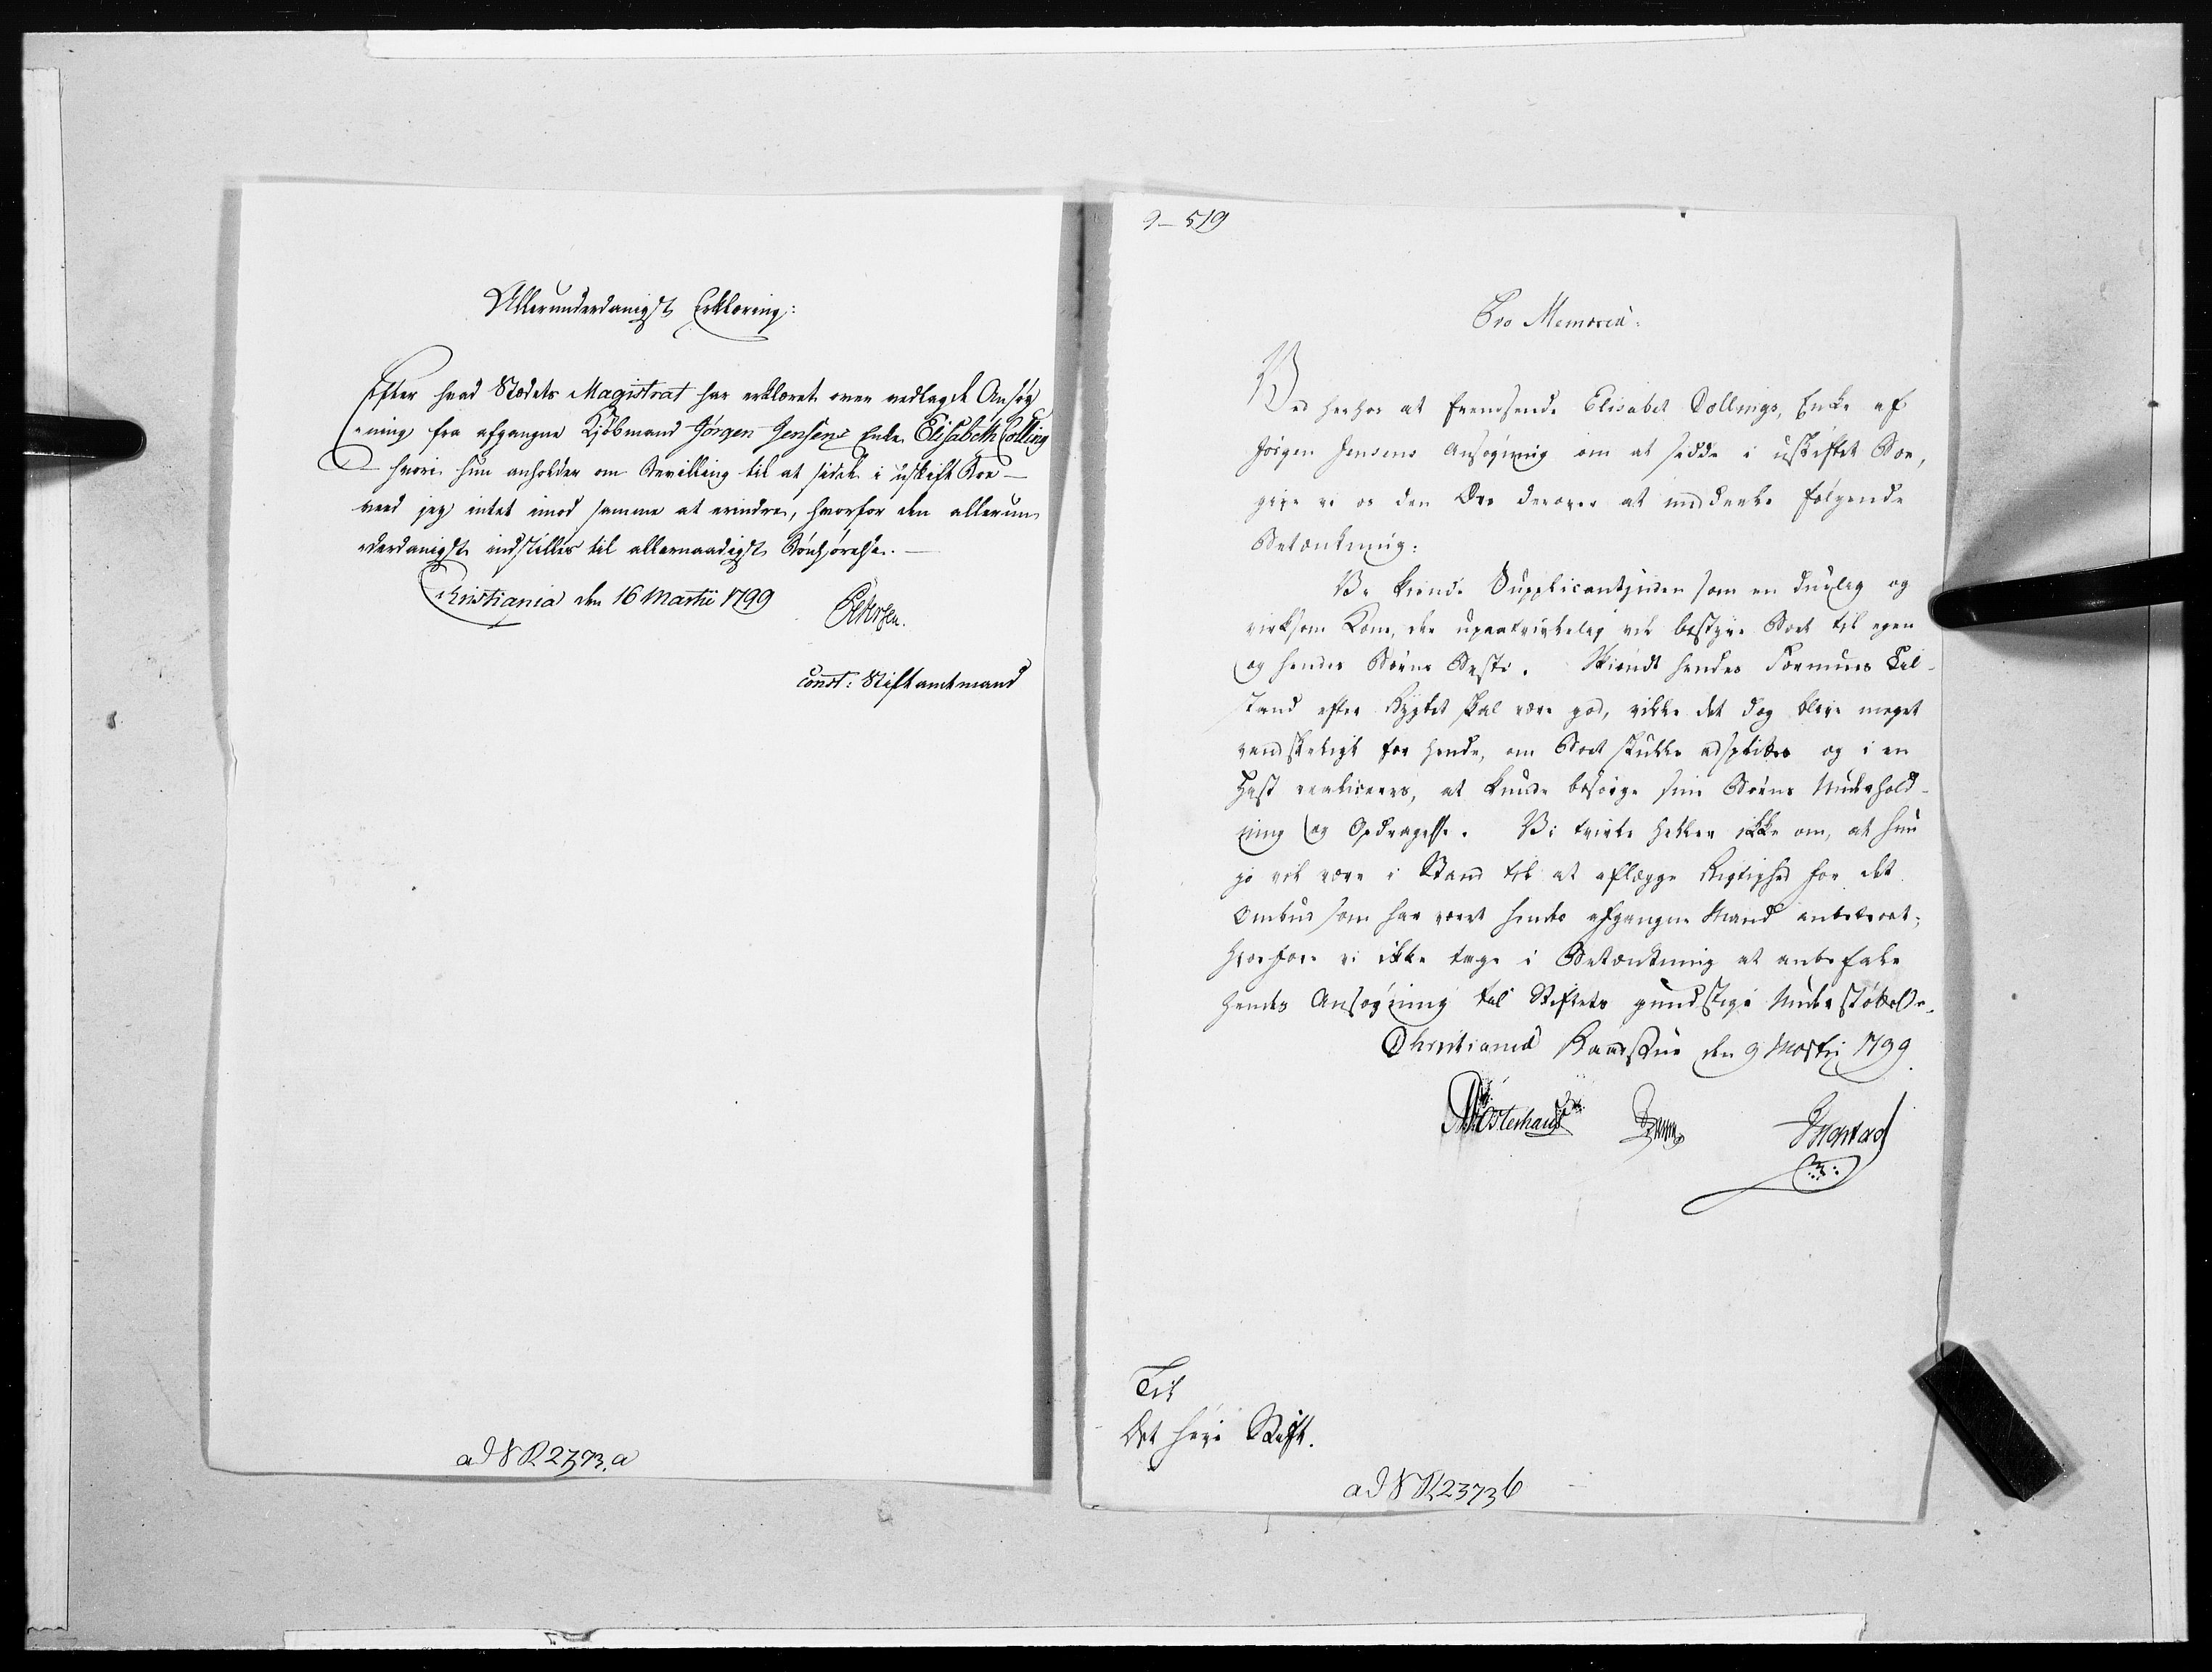 Allerunderdanigst Erklæring:
Efter hvad Stædets Magistrat har erklæret over vedlagde Ansøg
-ning fra afgangne Kjøbmand Jørgen Jensens Enke Elisabeth Colling
hvori hun anholder om Bevilling til at sidde i uskift Boe —
veed jeg intet imod samme at erindre, hvorfor den allerun-
-derdanigst indstilles til allernaadigst Bønhørelse. —
Christiania den 16 Martii 1799
Petersen.
const: Stiftamtmand
ad N R 2373.a
9 – 519
Pro Memoria:
Ved herhos at fremsende Elisabet Collings, Enke af
Jørgen Jensens Ansøgning om at sidde i uskiftet Boe,
give vi os den Ære derover at meddeele følgende
Betænkning:
Vi kiende Supplicantinden som en duelig og
virksom Kone, der upaatvivlelig vil bestyre Boet til egen
og hendes Børns Beste. Skiøndt hendes Formues Til-
stand efter Rygtet skal være god, vilde det dog blive meget
vandskeligt for hende, om Boet skulde adsplittes og i en
Hast realiseres, at kunde besørge sine Børns Underhold-
ning og Opdragelse. Vi tvivle heller ikke om, at hun
jo vil være i Stand til at aflægge Rigtighed for det
Ombud som har været hendes afgangne Mand anbetroet;
hvorfore vi ikke tage i Betænkning at anbefale
hendes Ansøgning til Stiftets gunstige Understøttelse.
Christiania Raadstue den 9 Martij 1799.
Til
Det høje Stift.
ad N R 2373 b